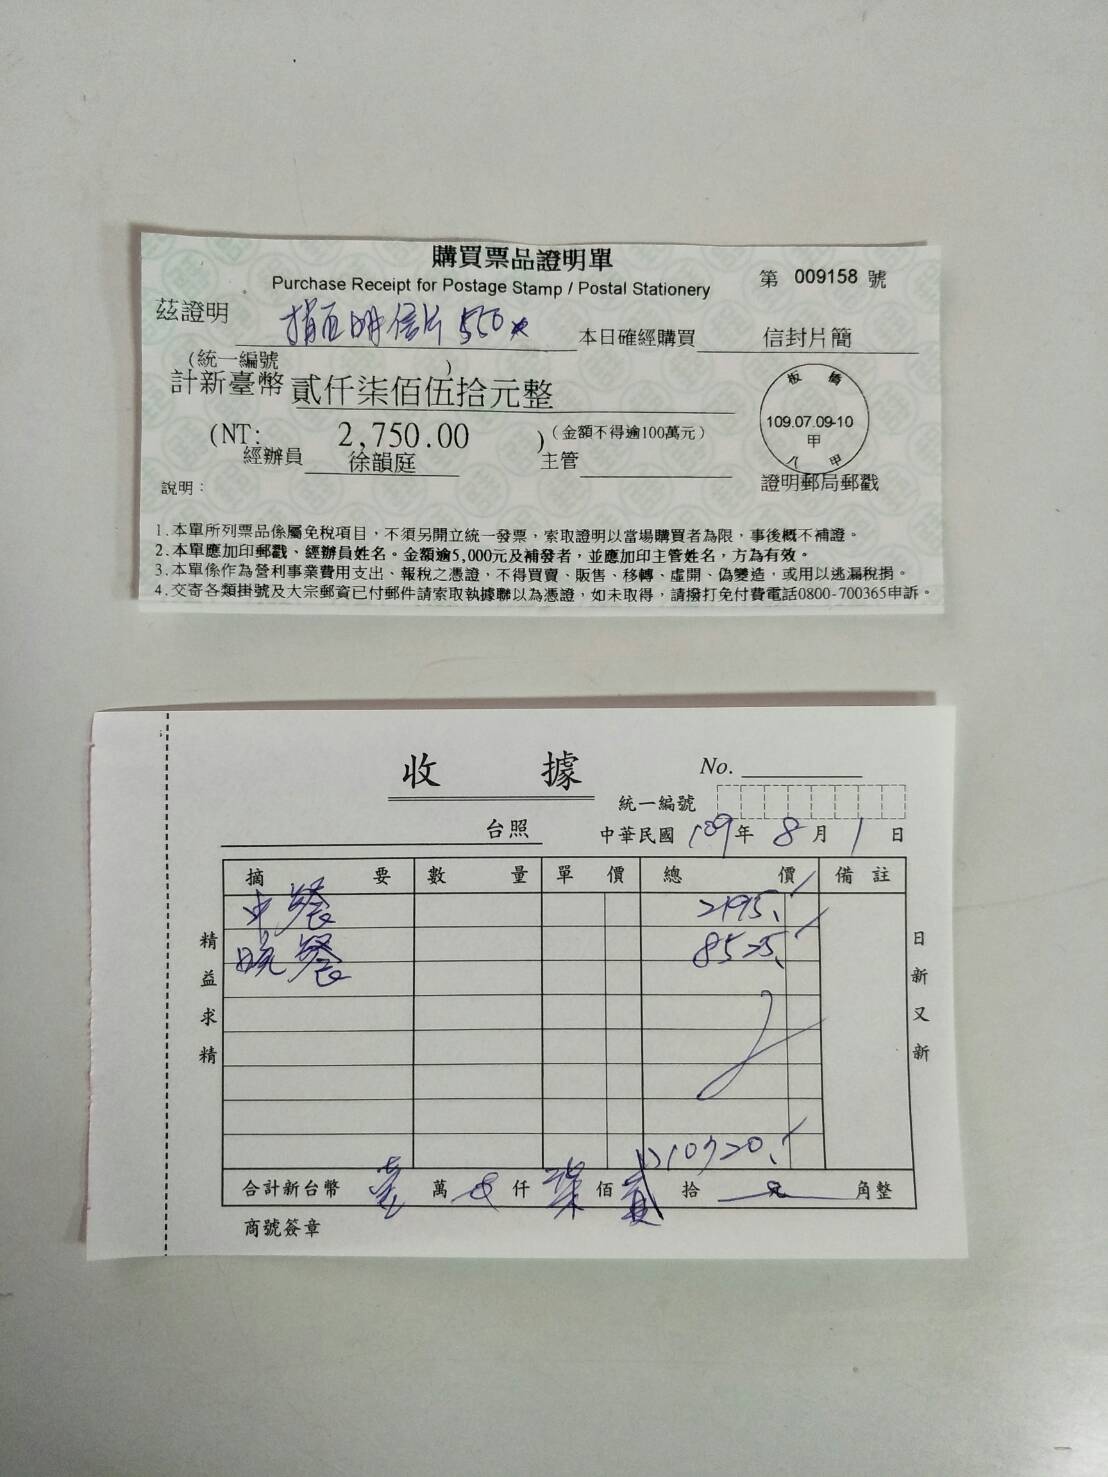 購買票品證明單
Purchase Receipt for Postage Stamp / Postal Stationery
第 009158 號
茲證明 捐血明信片550 本日確經購買 信封片簡
(統一編號 )
計新臺幣 貳仟柒佰伍拾元整
(NT: 2,750.00 ) (金額不得逾100萬元)
經辦員 徐韻庭 主管
板橋
109.07.09-10
甲
八甲
證明郵局郵戳
說明：
1.本單所列票品係屬免稅項目，不須另開立統一發票，索取證明以當場購買者為限，事後概不補證。
2.本單應加印郵戳、經辦員姓名。金額逾5,000元及補發者，並應加印主管姓名，方為有效。
3.本單係作為營利事業費用支出、報稅之憑證，不得買賣、販售、移轉、虛開、偽變造，或用以逃漏稅捐。
4.交寄各類掛號及大宗郵資已付郵件請索取執據聯以為憑證，如未取得，請撥打免付費電話0800-700365申訴。
收據
No.
統一編號
台照 中華民國 109 年 8 月 1 日
摘要 數量 單價 總價 備註
中餐 2195
晚餐 8525
10720
精益求精
日新又新
合計新台幣 壹 萬 仟 柒 佰 貳 拾 元 角整
商號簽章